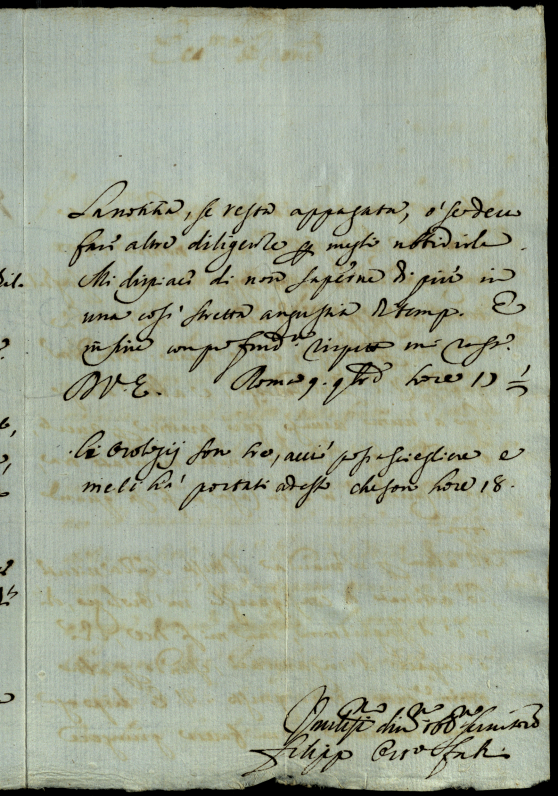 la notitia, se resta appagata, ò se deue
fare altre diligenze p meglio ubbidirla.
Mi dispiace di non saperne di più in
una così stretta angustia di tempo. E
in fine con profond.o rispetto mi rasso.
D. V. E. Roma 9. 9bre hore 17 ½
Gli Orologij son tre, acciò possa scegliere e
me li hà portati adesso che son hore 18.
Humiliss.o diu.mo obb.mo seruitore
Filippo